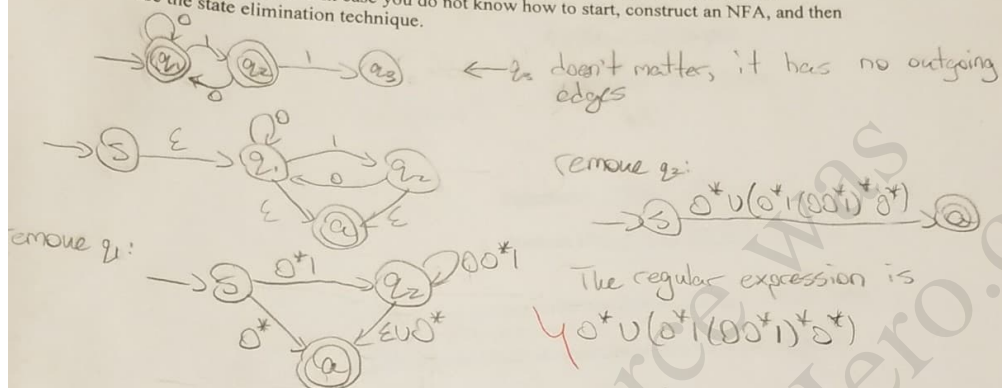 you do not know how to start, construct an NFA, and then
the state elimination technique.
0
1
q1 q2 1 q3
0
← q3 doesn't matter, it has no outgoing
edges
0
S ε q1 1 q2
0
ε ε
a
remove q2:
S 0*∪(0*1(00*1)*0*) a
emove q1:
S 0*1 q2 00*1
0* ε∪0*
a
The regular expression is
0*∪(0*1(00*1)*0*)
rce was
Hero.c